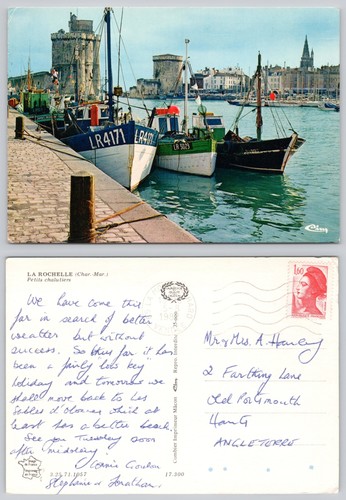 LR4171
LR4171
Cim
LA ROCHELLE (Char.-Mar.)
Petits chalutiers
We have come this
far in search of better
weather but without
success. So thus far it has
been a fairly low key
holiday and tomorrow we
shall move back to Les
Sables d'Olonnes which at
least has a better beach.
See you Tuesday soon
after midday.
Stephanie & Jonathan.
3.25.71.1057
17.300
Combier Imprimeur Mâcon
Cim
1,60
Mr & Mrs A.
2 Farthing Lane
Old Portsmouth
Hants
ANGLETERRE